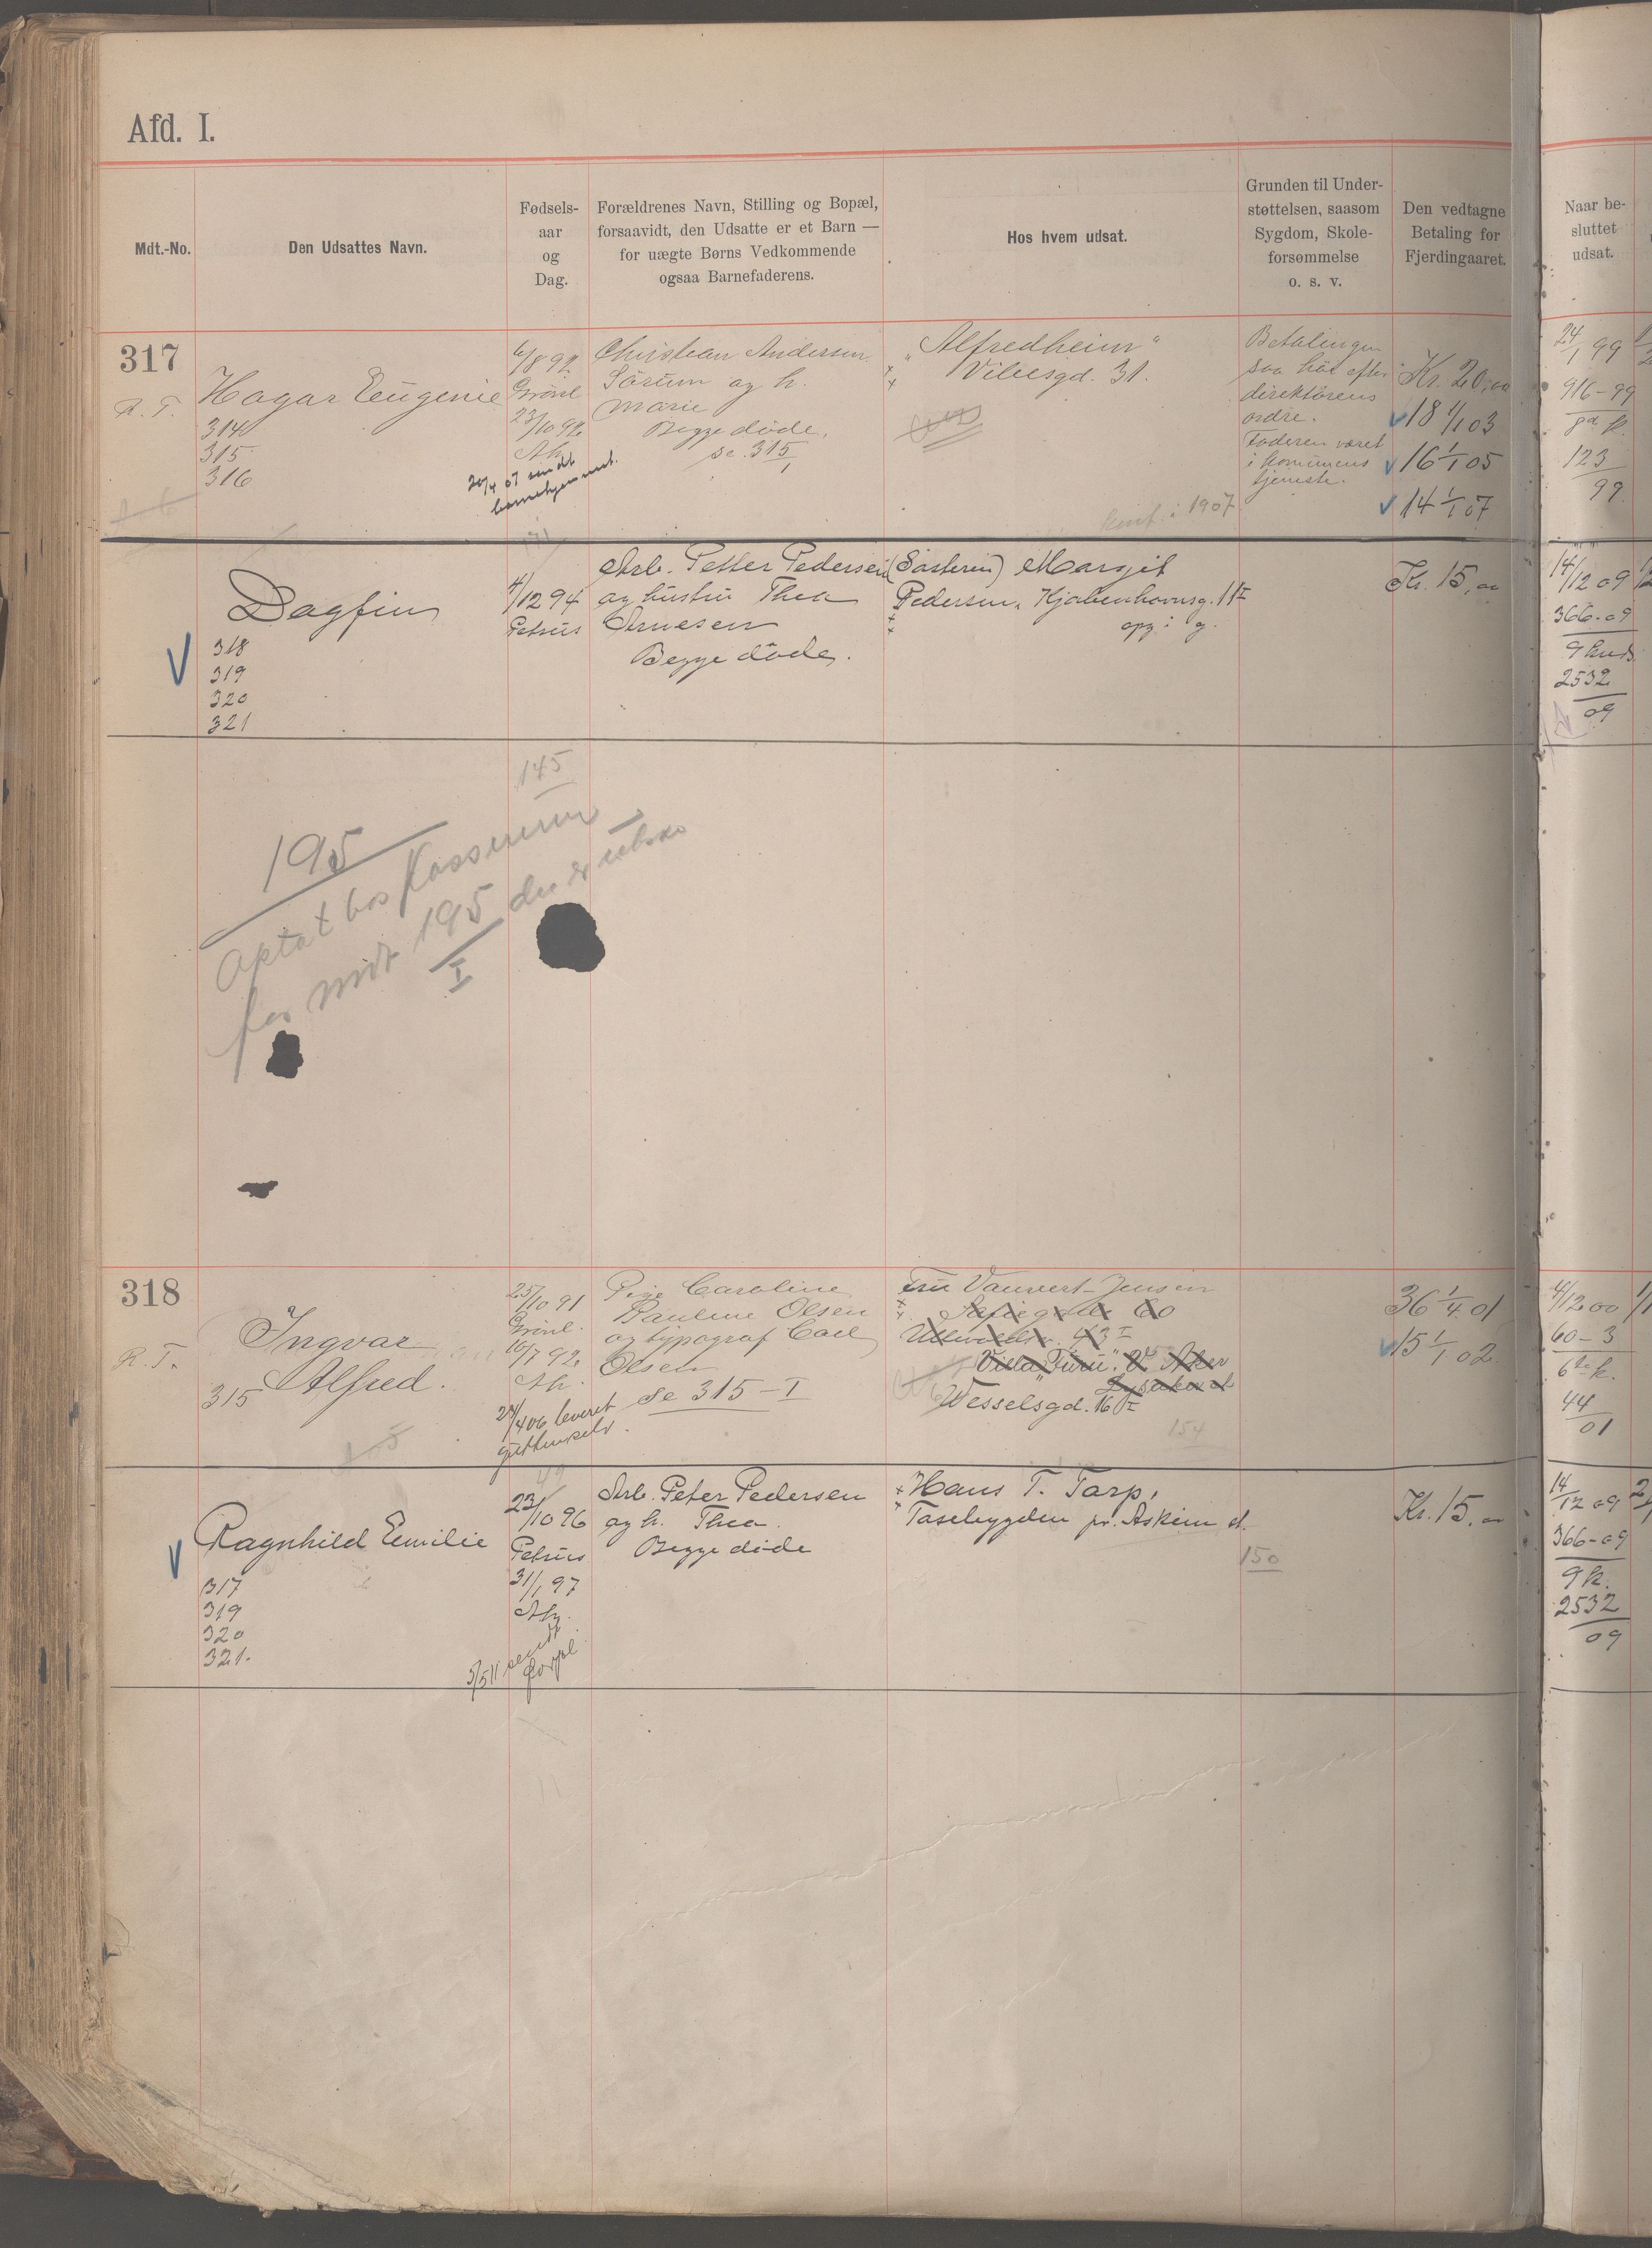 Afd. I.
Mdt.-No.
Den Udsattes Navn.
Fødsels-
aar
og
Dag.
Forældrenes Navn, Stilling og Bopæl,
forsaavidt, den Udsatte er et Barn —
for uægte Børns Vedkommende
ogsaa Barnefaderens.
Hos hvem udsat.
Grunden til Under-
støttelsen, saasom
Sygdom, Skole-
forsømmelse
o. s. v.
Den vedtagne
Betaling for
Fjerdingaaret.
Naar be-
sluttet
udsat.
317
R. T.
Hagar Eugenie
314
315
316
6/8 92
Grönl
23/10 92
Ak.
20/4 07 sendt
Christian Andersen
Sörum og h.
Marie
Begge döde.
se 315/1
"Alfredheim"
Vibesgd. 31.
konf. i 1907
Betalingen
saa höi efter
direktörens
ordre.
Faderen været
i kommunens
tjeneste.
Kr. 20,00
18 1/1 03
16 1/1 05
14 1/1 07
24/1 99
916-99
123
99
Dagfin
318
319
320
321
4/12 94
Petrus
Arb. Petter Pedersen
og hustru Thea
Arnesen
Begge döde.
(Søsteren) Margit
Pedersen, Kjøbenhavnsg. 11 I
opg. i g.
Kr. 15,00
14/12 09
366-09
2532
09
145
195
for mdt 195 der er
I
318
R. T.
Ingvar
Alfred.
315
25/10 91
Grönl.
10/7 92
Ak.
24/4 06 leveret
Pige Caroline
Pauline Olsen
og typograf Carl
Olsen
Se 315-I
Fru Vauvert-Jensen
60
43 I
Villa "Furu". V. Aker
Lysaker st
Wesselsgd. 16 I
154
36 1/4 01
15 1/1 02
4/12 00
60-3
6te k.
44
01
Ragnhild Emilie
317
319
320
321.
23/10 96
Petrus
31/1 97
Ak.
5/5 11 sendt
Arb. Peter Pedersen
og h. Thea.
Begge döde
Hans T. Tarp,
Tasebygden pr. Askim st.
150
Kr. 15,00
14/12 09
366-09
9 k.
2532
09